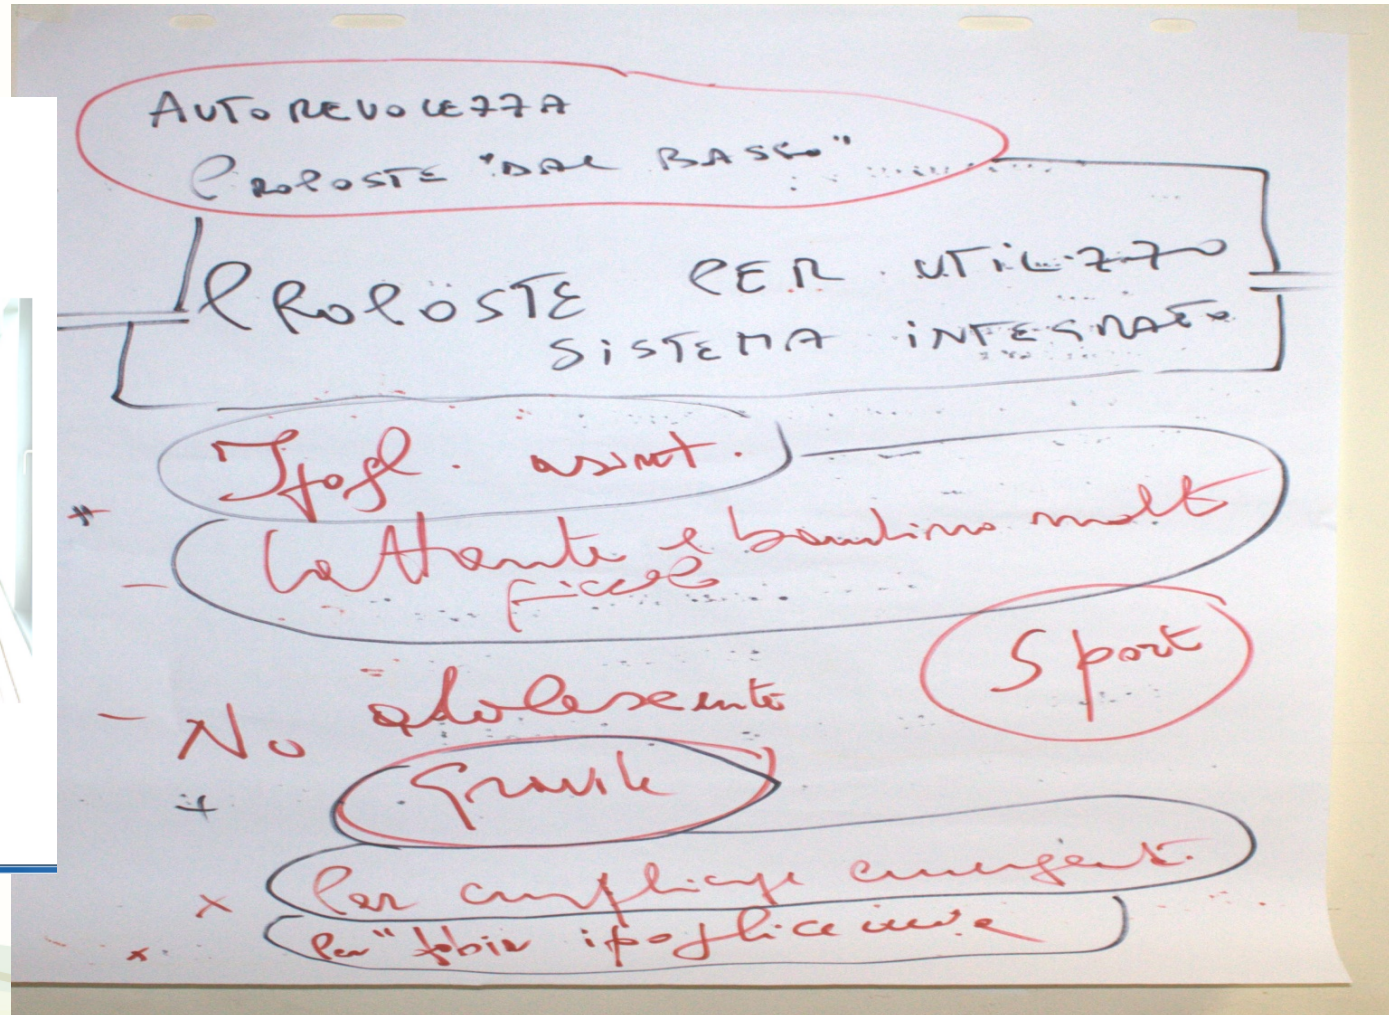 AUTOREVOLEZZA
PROPOSTE "DAL BASSO"
PROPOSTE PER UTILIZZO
SISTEMA INTEGRATO
Ipogl. asint.
Lattante e bambino molto
piccolo
- No adolescente
Sport
Gravide
Per compliance emergent.
Per "fobia ipoglicemia